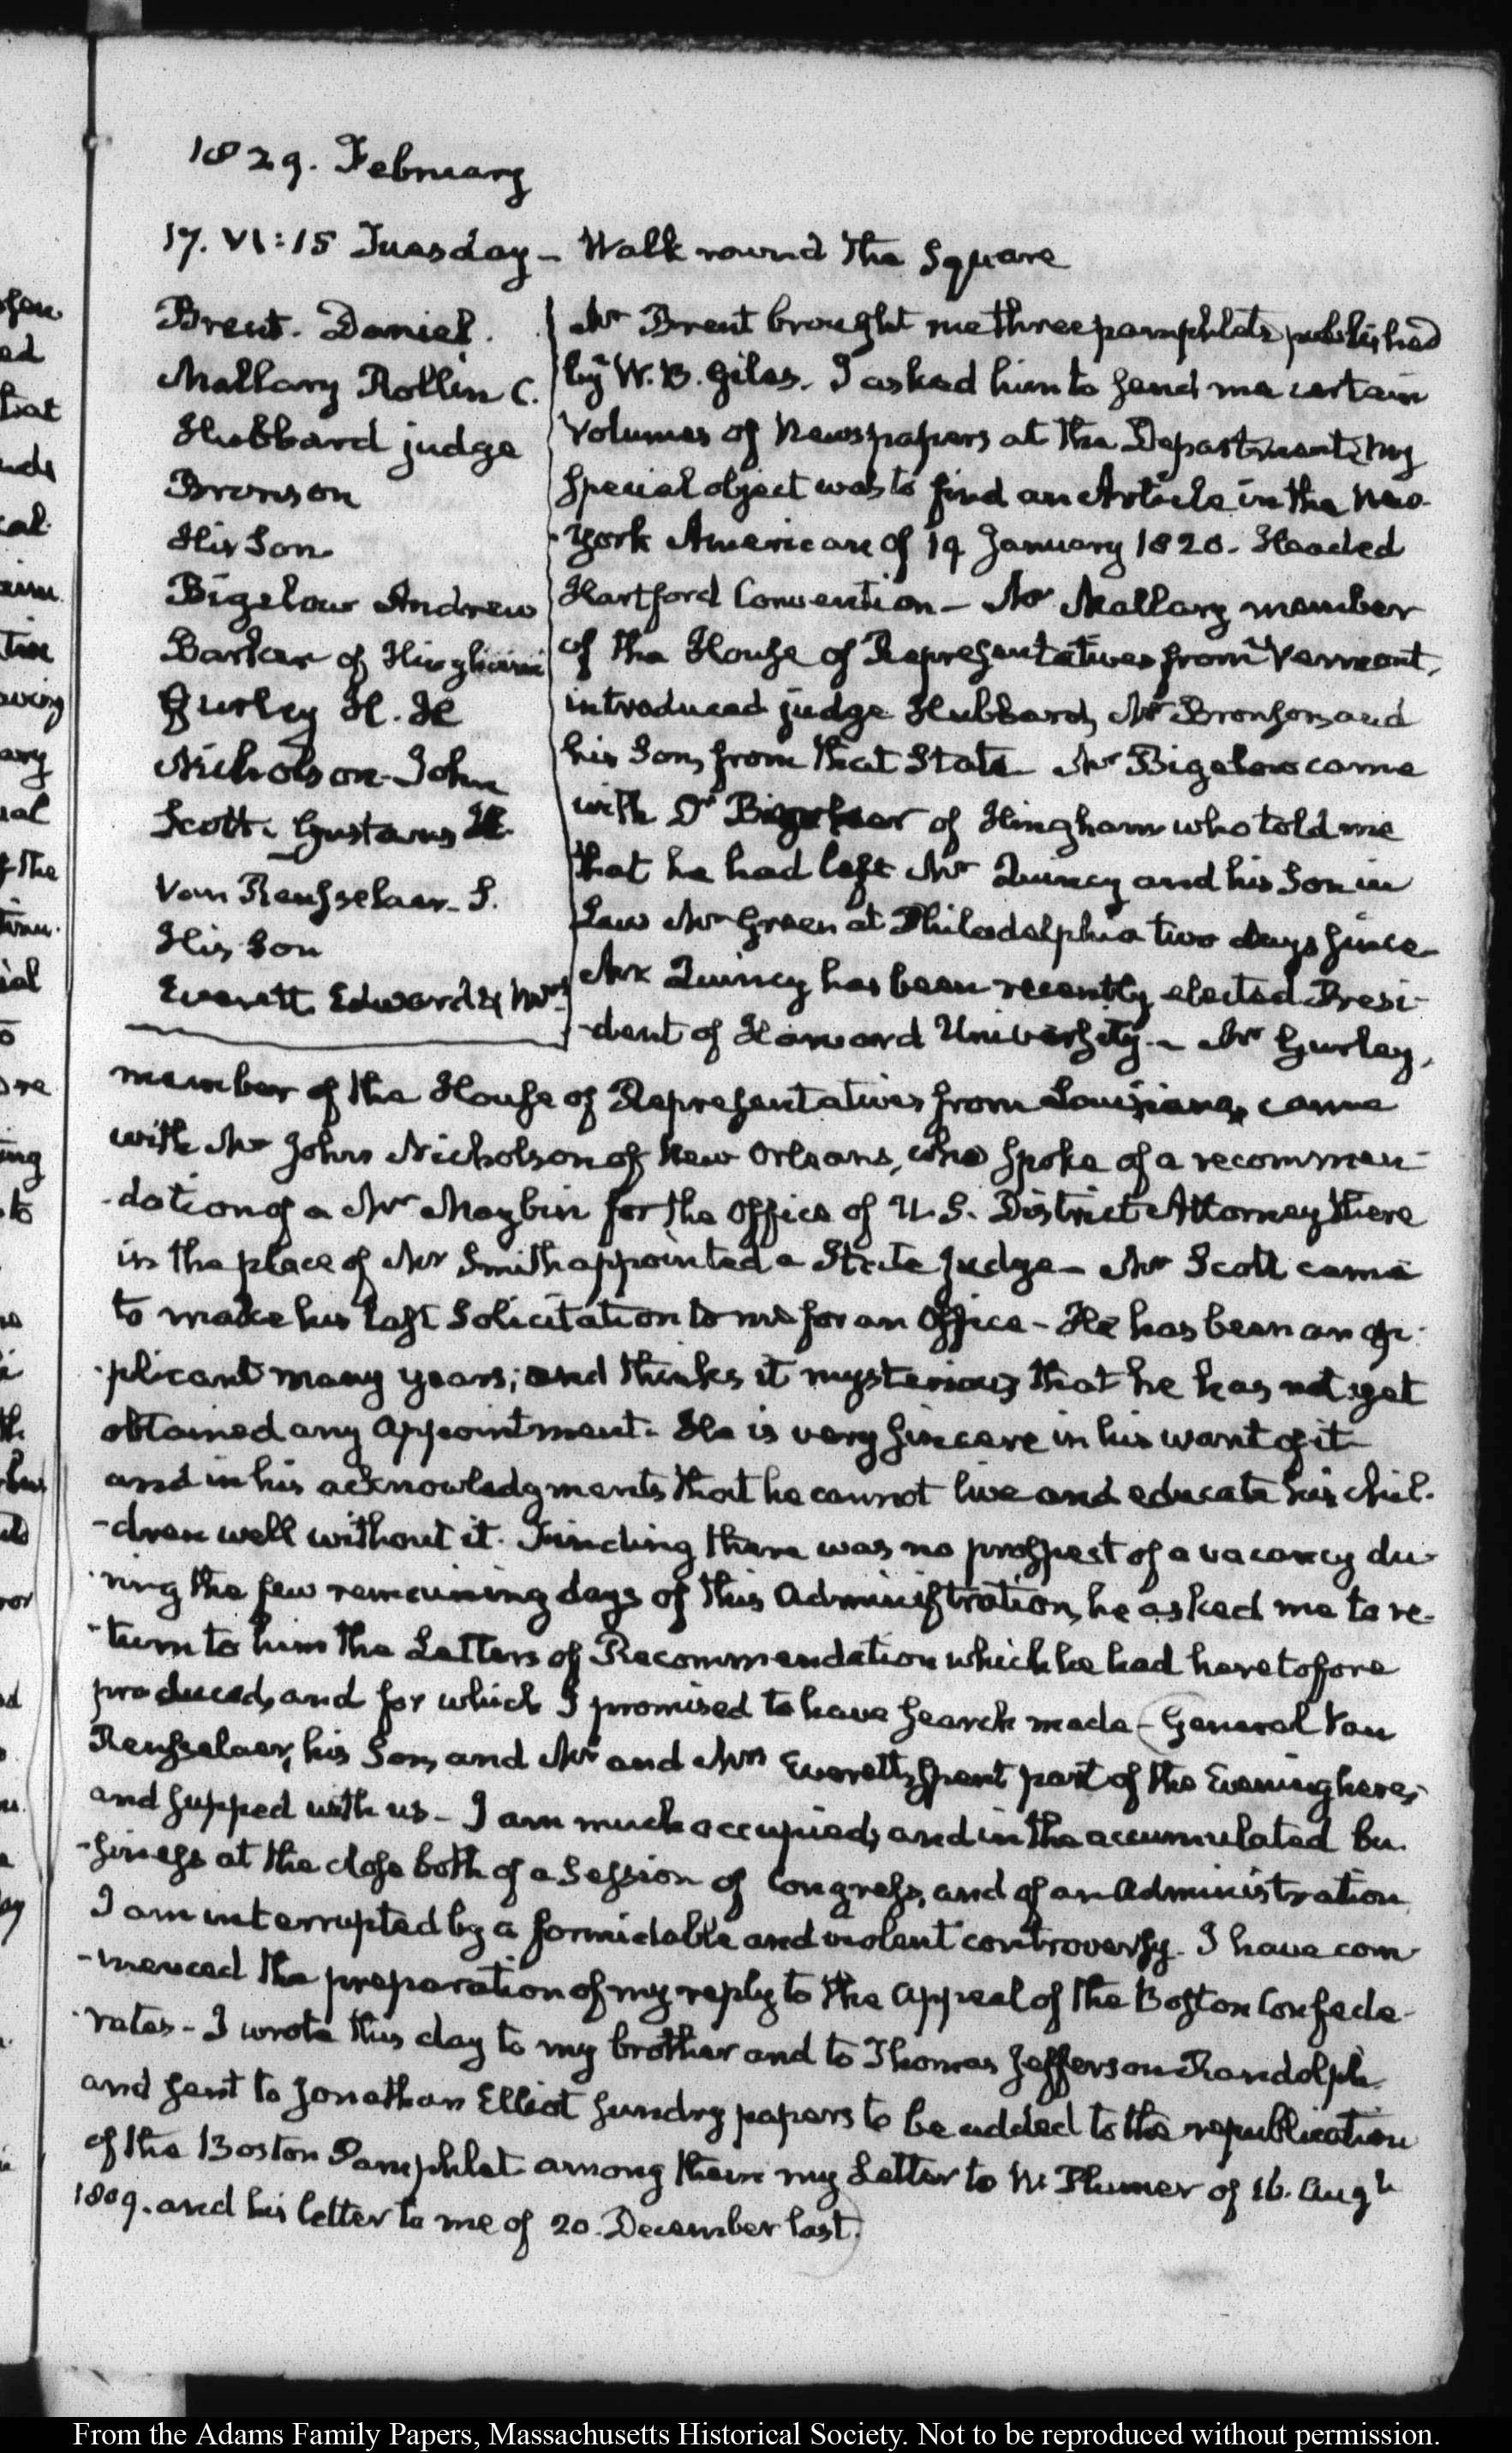 1829. February
17. VI:15 Tuesday – Walk round the Square
Brent. Daniel.
Mallary Rollin C.
Hubbard judge
Bronson
His Son
Bigelow Andrew
Barker of Hingham
Gurley H. H
Nicholson John
Scott. Gustavus H.
Van Rensselaer. S.
His Son
Everett Edward & Mrs
Mr Brent brought me three pamphlets, published
by W. B. Giles. I asked him to send me certain
volumes of Newspapers at the Department; my
special object was to find an Article in the New-
-york American of 19 January 1820. Headed
Hartford Convention – Mr Mallary member
of the House of Representatives from Vermont,
introduced judge Hubbard, Mr Bronson, and
his Son, from that State. Mr Bigelow came
with Dr of Hingham who told me
that he had left Mr Quincy and his Son in
Law Mr Green at Philadelphia two days since
Mr Quincy has been recently elected Presi-
-dent of Harvard University. – Mr Gurley,
member of the House of Representatives from Louisiana, came
with Mr John Nicholson of New Orleans, who spoke of a recommen-
-dation of a Mr Maybin for the Office of U. S. District Attorney there
in the place of Mr Smith appointed a State judge – Mr Scott came
to make his last Solicitation to me for an Office – He has been an ap-
-plicant many years; and thinks it mysterious that he has not yet
obtained any appointment. He is very sincere in his want of it
and in his acknowledgments that he cannot live and educate his chil-
-dren well without it. Finding there was no prospect of a vacancy du-
-ring the few remaining days of this Administration, he asked me to re-
-turn to him the Letters of Recommendation which he had heretofore
produced, and for which I promised to have search made – General Van
Rensselaer, his Son, and Mr and Mrs Everett, spent part of the Evening here,
and supped with us – I am much occupied, and in the accumulated bu-
-siness at the close both of a Session of Congress, and of an Administration
I am interrupted by a formidable and violent controversy. I have com-
-menced the preparation of my reply to the Appeal of the Boston Confede-
-rates – I wrote this day to my brother and to Thomas Jefferson Randolph
and sent to Jonathan Elliot sundry papers to be added to the republication
of the Boston Pamphlet among them my Letter to W. Plumer of 16. Augt
1809. and his letter to me of 20. December last.
From the Adams Family Papers, Massachusetts Historical Society. Not to be reproduced without permission.